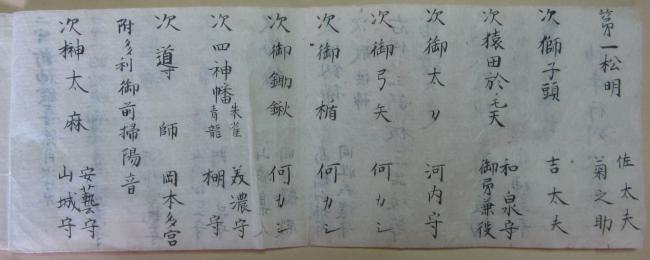 第一松明 佐太夫 菊之助
次獅子頭 吉太夫
次猿田於毛天 和泉守 御男兼役
次御太刀 河内守
次御弓矢 何カシ
次御楯 何カシ
次御鋤鍬 何カシ
次四神幡 朱雀 青龍 美濃守 棚守
次導師 岡本多宮
附多利御前掃陽音
次榊太麻 安藝守 山城守